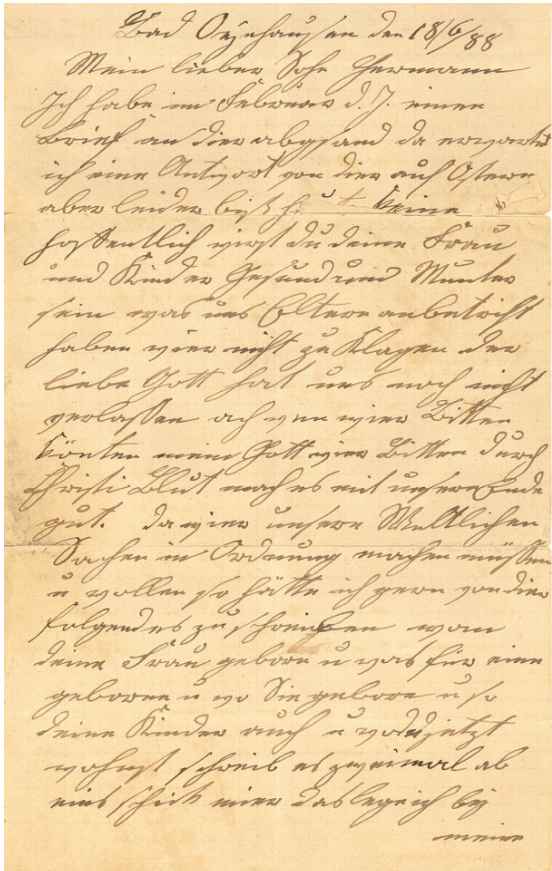 Bad Oeynhausen den 18/6/88
Mein lieber Sohn Hermann
Ich habe im Februar d. J. einen
Brief an dier abgsand da erwartete
ich eine Antwort von dier auf Ostern
aber leider bis heute keine
hoffentlich wirst du deine Frau
und Kinder Gesund und Munter
sein was uns Eltern anbetrift
haben wier nicht zu Klagen der
liebe Gott hat uns noch nicht
verlassen ach wen wier Bitten
könten mein Gott wier Bitten durch
Christi Blut mach es mit unsern Ende
gut. da wier unsere Weltlichen
Sachen in Ordnung machen müssen
u wollen so hätte ich gern von dier
folgendes zu schreiben wan
deine Frau geboren u was für eine
geborene u wo Sie geboren u so
deine Kinder auch u wo du jetzt
wohnst schreib es zweimal ab
eins schick mier das lege ich bei
meine